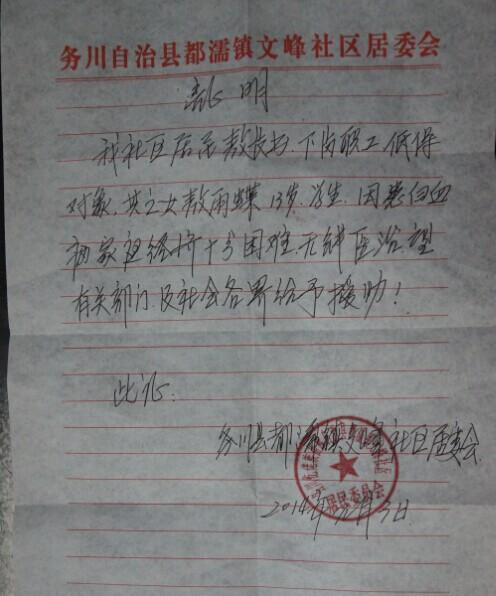 务川自治县都濡镇文峰社区居委会
证明
我社区居民敖技书 下岗职工 低保
对象,其之女敖雨蝶 13岁,学生,因患白血
病家祖经济十分困难.无钱医治.望
有关部门及社会各界给予援助!
此证.
务川县都濡镇文峰社区居委会
居民委员会
2014年 月3日